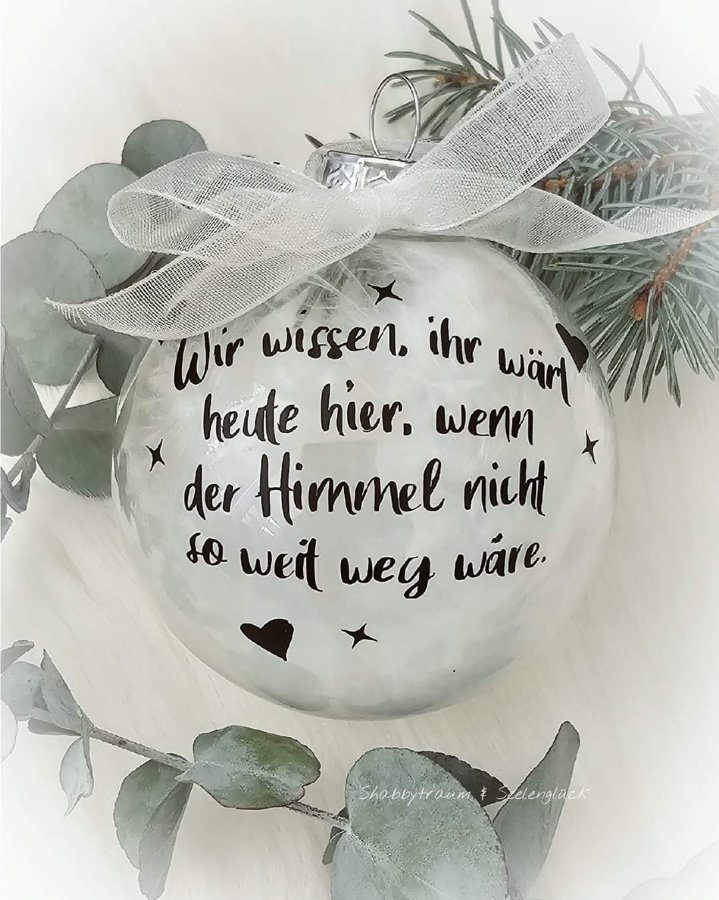 Wir wissen, ihr wärt
heute hier, wenn
der Himmel nicht
so weit weg wäre.
Shabbytraum & Seelenglück